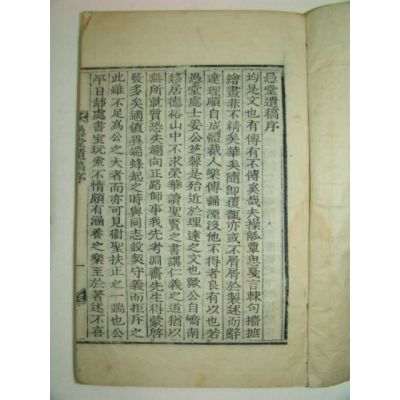 愚堂遺稿序
均是文也有傳有不傳奚哉夫操觚覃思戞言棘句擅摭
繪畫菲不精矣華矣隨卽覆瓿亦或不屑屑於製述而辭
達理順自成體裁人樂傳誦湮沒他不得者良有以也若
愚堂處士姜公芝馨是殆近於理達之文也歟公自嶠南
移居德裕山中不求榮華讀聖賢之書講仁義之道猶以
無所就質恐失趨向正路師事我先考淵齋先生得蒙啓
發多矣適値異端蜂起之時與同志設契守義而拒斥之
此雖不足爲公之大者而亦可見衛聖扶正之一端也公
平日靜處書室玩索不惰頗有涵養之樂至於著述不喜
愚堂遺稿序 一